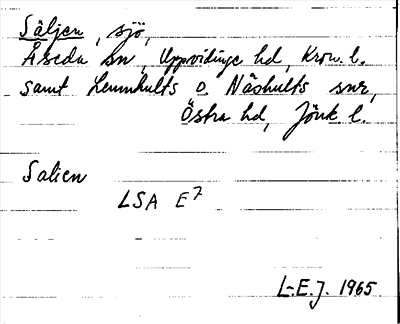 Säljen, sjö,
Åseda sn, Uppvidinge hd, Kron. l.
samt Lemnhults o. Näshults snr,
Östra hd, Jönk l.
Salien
LSA E7
L-E.J. 1965